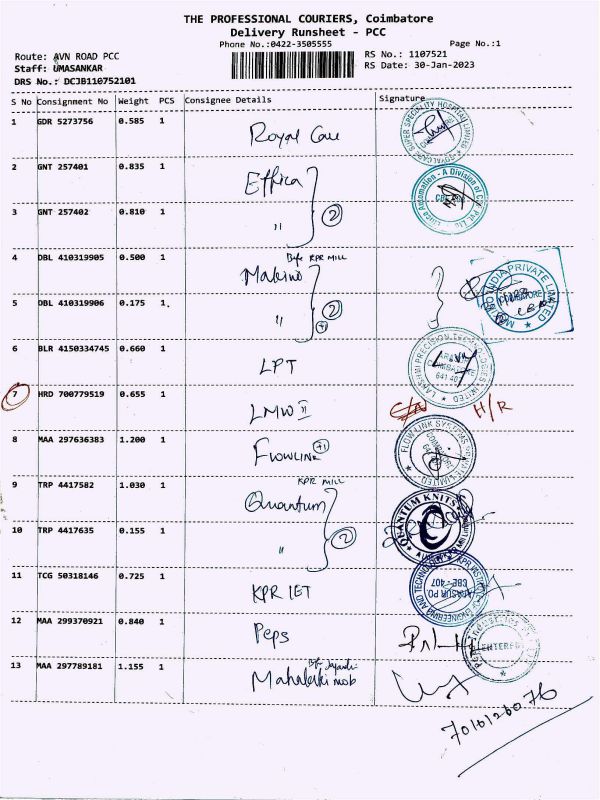 THE PROFESSIONAL COURIERS, Coimbatore
Delivery Runsheet - PCC
Phone No.:0422-3505555
Page No.:1
Route: AVN ROAD PCC
RS No.: 1107521
Staff: UMASANKAR
RS Date: 30-Jan-2023
DRS No.: DCJB110752101
S No Consignment No Weight PCS Consignee Details Signature
1 GDR 5273756 0.585 1 Royal Care
2 GNT 257401 0.835 1 Effica
3 GNT 257402 0.810 1 " 2
4 DBL 410319905 0.500 1 Makino Bef KPR MILL
5 DBL 410319906 0.175 1 " 2
6 BLR 4150334745 0.660 1 LPT
7 HRD 700779519 0.655 1 LMW II H/R
8 MAA 297636383 1.200 1 Flowlink +1
9 TRP 4417582 1.030 1 Quantum KPR MILL
10 TRP 4417635 0.155 1 " 2
11 TCG 50318146 0.725 1 KPR IET
12 MAA 299370921 0.840 1 Peps
13 MAA 297789181 1.155 1
ROYALCARE SUPER SPECIALITY HOSPITAL LIMITED
MAKINO INDIA PRIVATE LIMITED
LAKSHMI PRECISION TECHNOLOGIES LIMITED
COIMBATORE
641 407
FLOWLINK SYSTEMS PRIVATE LIMITED
QUANTUM KNITS
ARASUR PO
CBE-407
ENTERED